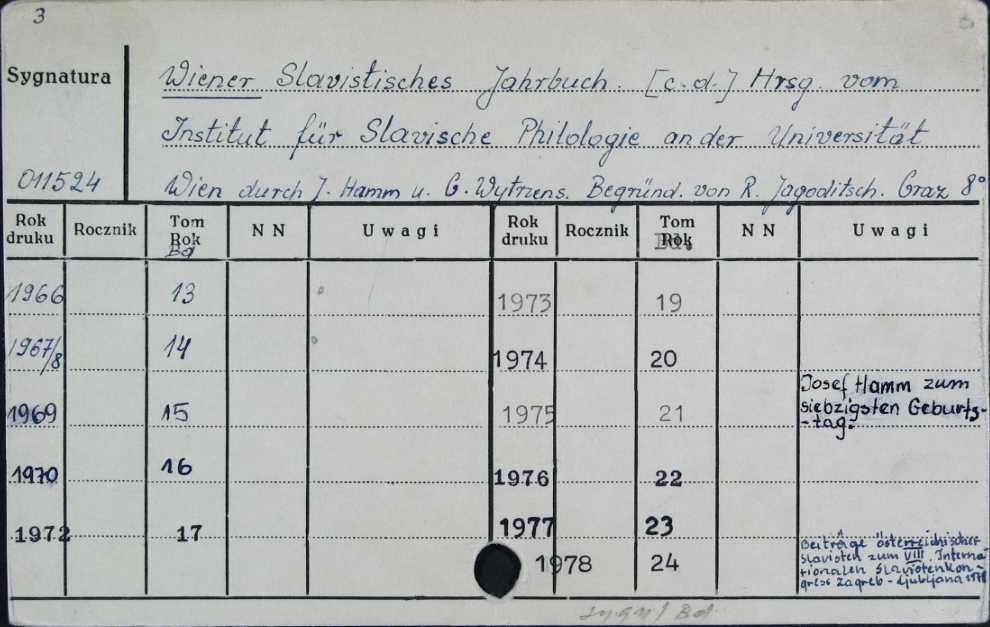 3
Sygnatura
Wiener Slavistisches Jahrbuch. [c.d.] Hrsg. vom
Institut für Slavische Philologie an der Universität
011524 Wien durch J. Hamm u. G. Wytrzens. Begründ. von R. Jagoditsch. Graz 8°
Rok druku Rocznik Tom Rok Bd NN Uwagi Rok druku Rocznik Tom Rok Bd. NN Uwagi
1966 13 1973 19
1967/8 14 1974 20
1969 15 1975 21 Josef Hamm zum
siebzigsten Geburts-
-tag.
1970 16 1976 22
1972 17 1977 23
1978 24 Beiträge österreichischer
Slavisten zum VIII. Interna-
tionalen Slavistenkon-
gress Zagreb - Ljubljana 1978
Bd.